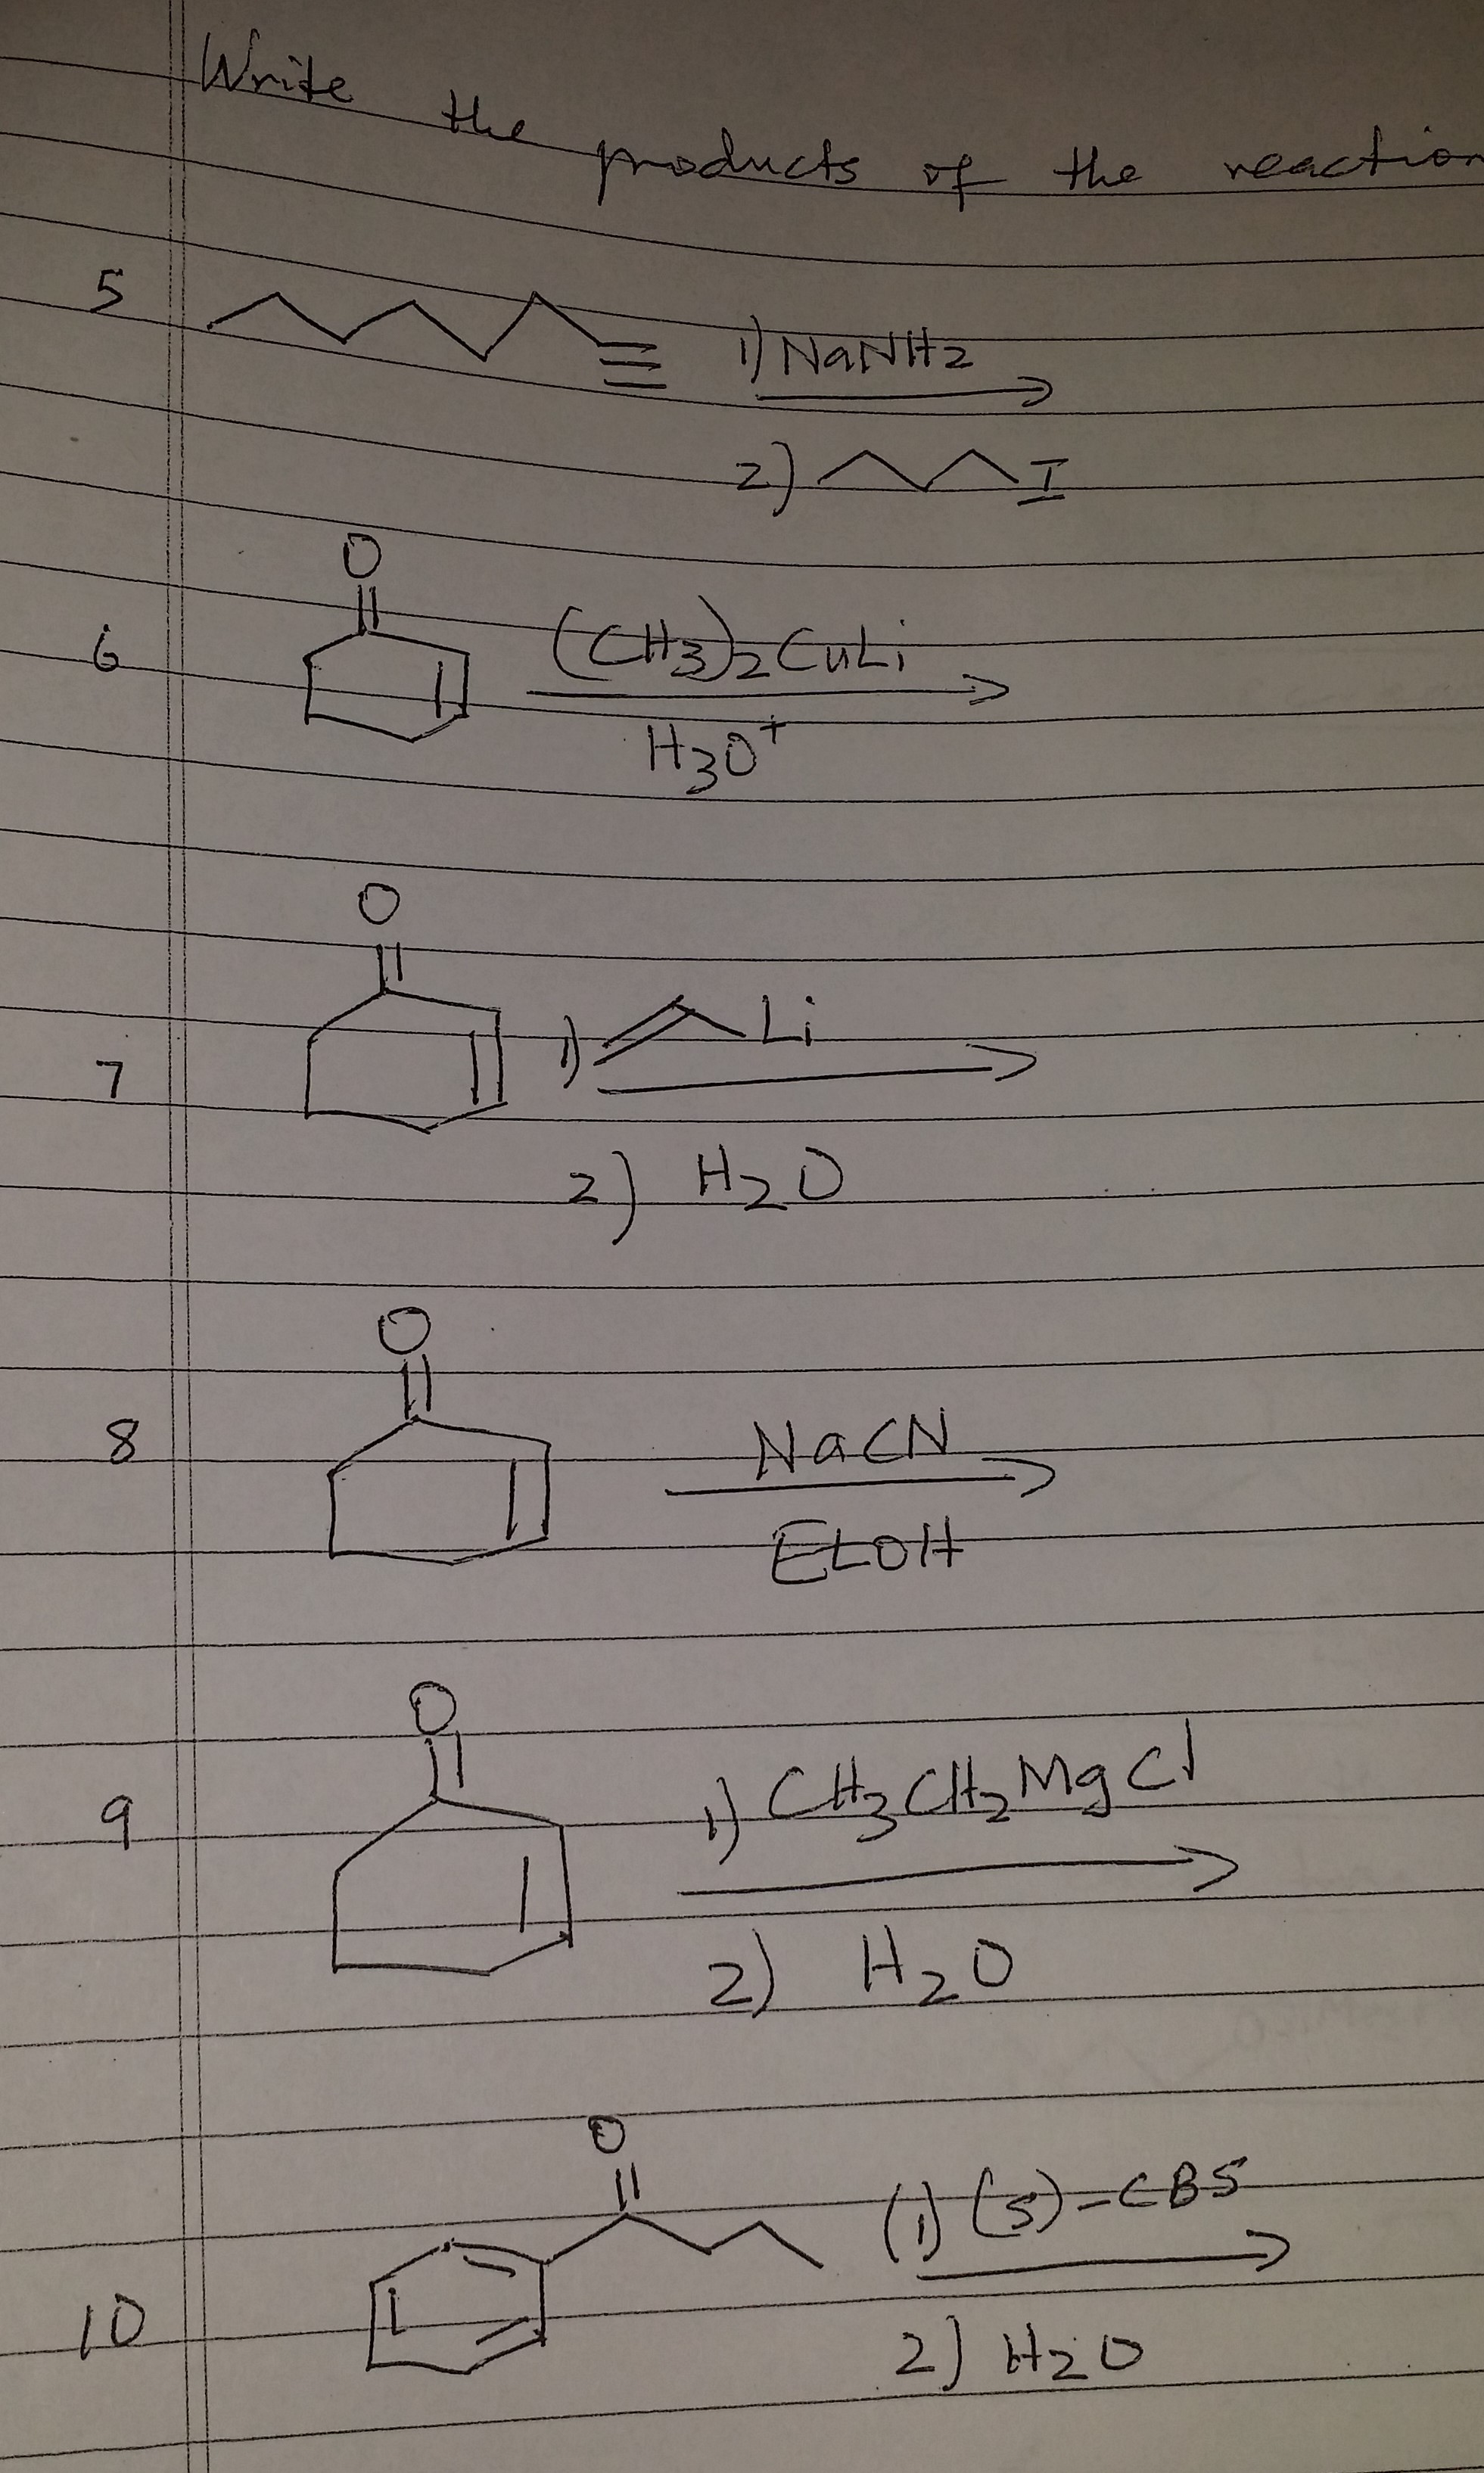 Write the products of the reaction
5
1) NaNH2
2) I
O
6
(CH3)2CuLi
H3O+
O
7
1) Li
2) H2O
O
8
NaCN
EtOH
O
9
1) CH3CH2MgCl
2) H2O
O
10
(1) (S)-CBS
2) H2O